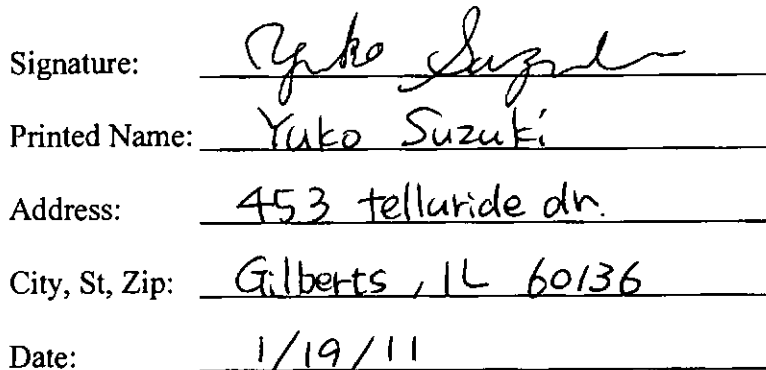 Signature: Yuko Suzuki
Printed Name: Yuko Suzuki
Address: 453 telluride dr.
City, St, Zip: Gilberts, IL 60136
Date: 1/19/11